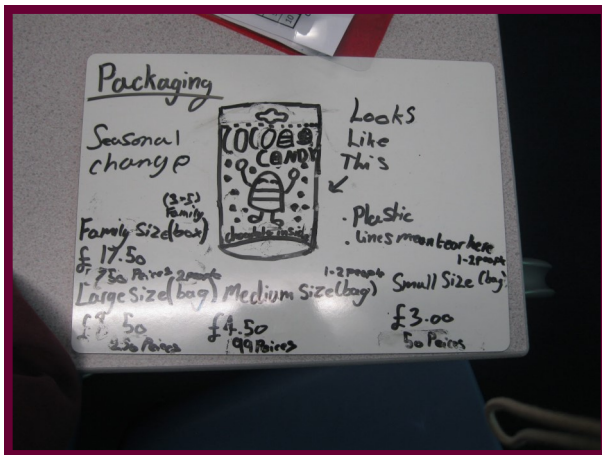 Packaging
Seasonal
change
COCOA
CANDY
Looks
Like
This
• Plastic
• Lines mean tear here
(3-5)
Family
Family Size (box)
£17.50
750 Peices
Large Size (bag)
£8.50
250 Peices
1-2 people
Medium Size (bag)
£4.50
99 Peices
1-2 people
Small Size (bag)
£3.00
50 Peices